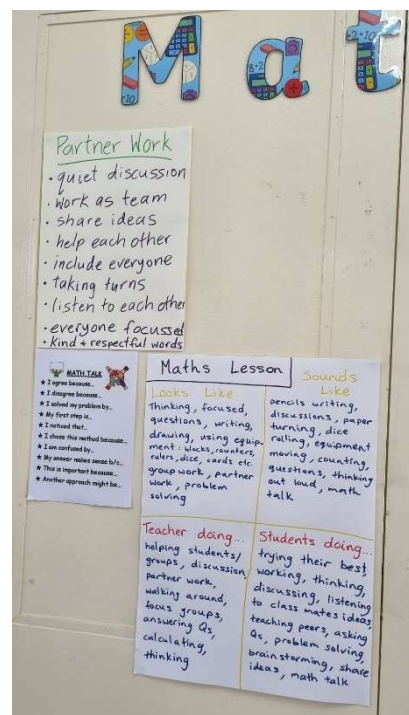 Mat
Partner Work
• quiet discussion
• work as team
• share ideas
• help each other
• include everyone
• taking turns
• listen to each other
• everyone focussed
• Kind + respectful words
MATH TALK
★ I agree because..
★ I disagree because..
★ I solved my problem by..
★ My first step is..
★ I noticed that..
★ I chose this method because..
★ I am confused by..
★ My answer makes sense b/c..
★ This is important because..
★ Another approach might be..
Maths Lesson
Looks Like
Thinking, focused,
questions, writing,
drawing, using equip-
ment: blocks, counters,
rulers, dice, cards etc.
group work, partner
work, problem
solving
Sounds
Like
pencils writing,
discussions, paper
turning, dice
rolling, equipment
moving, counting,
questions, thinking
out loud, math
talk
Teacher doing...
helping students/
groups, discussion,
partner work,
walking around,
focus groups,
answering Qs,
calculating,
thinking
Students doing...
trying their best,
working, thinking,
discussing, listening
to class mates ideas,
teaching peers, asking
Qs, problem solving,
brainstorming, share
ideas, math talk